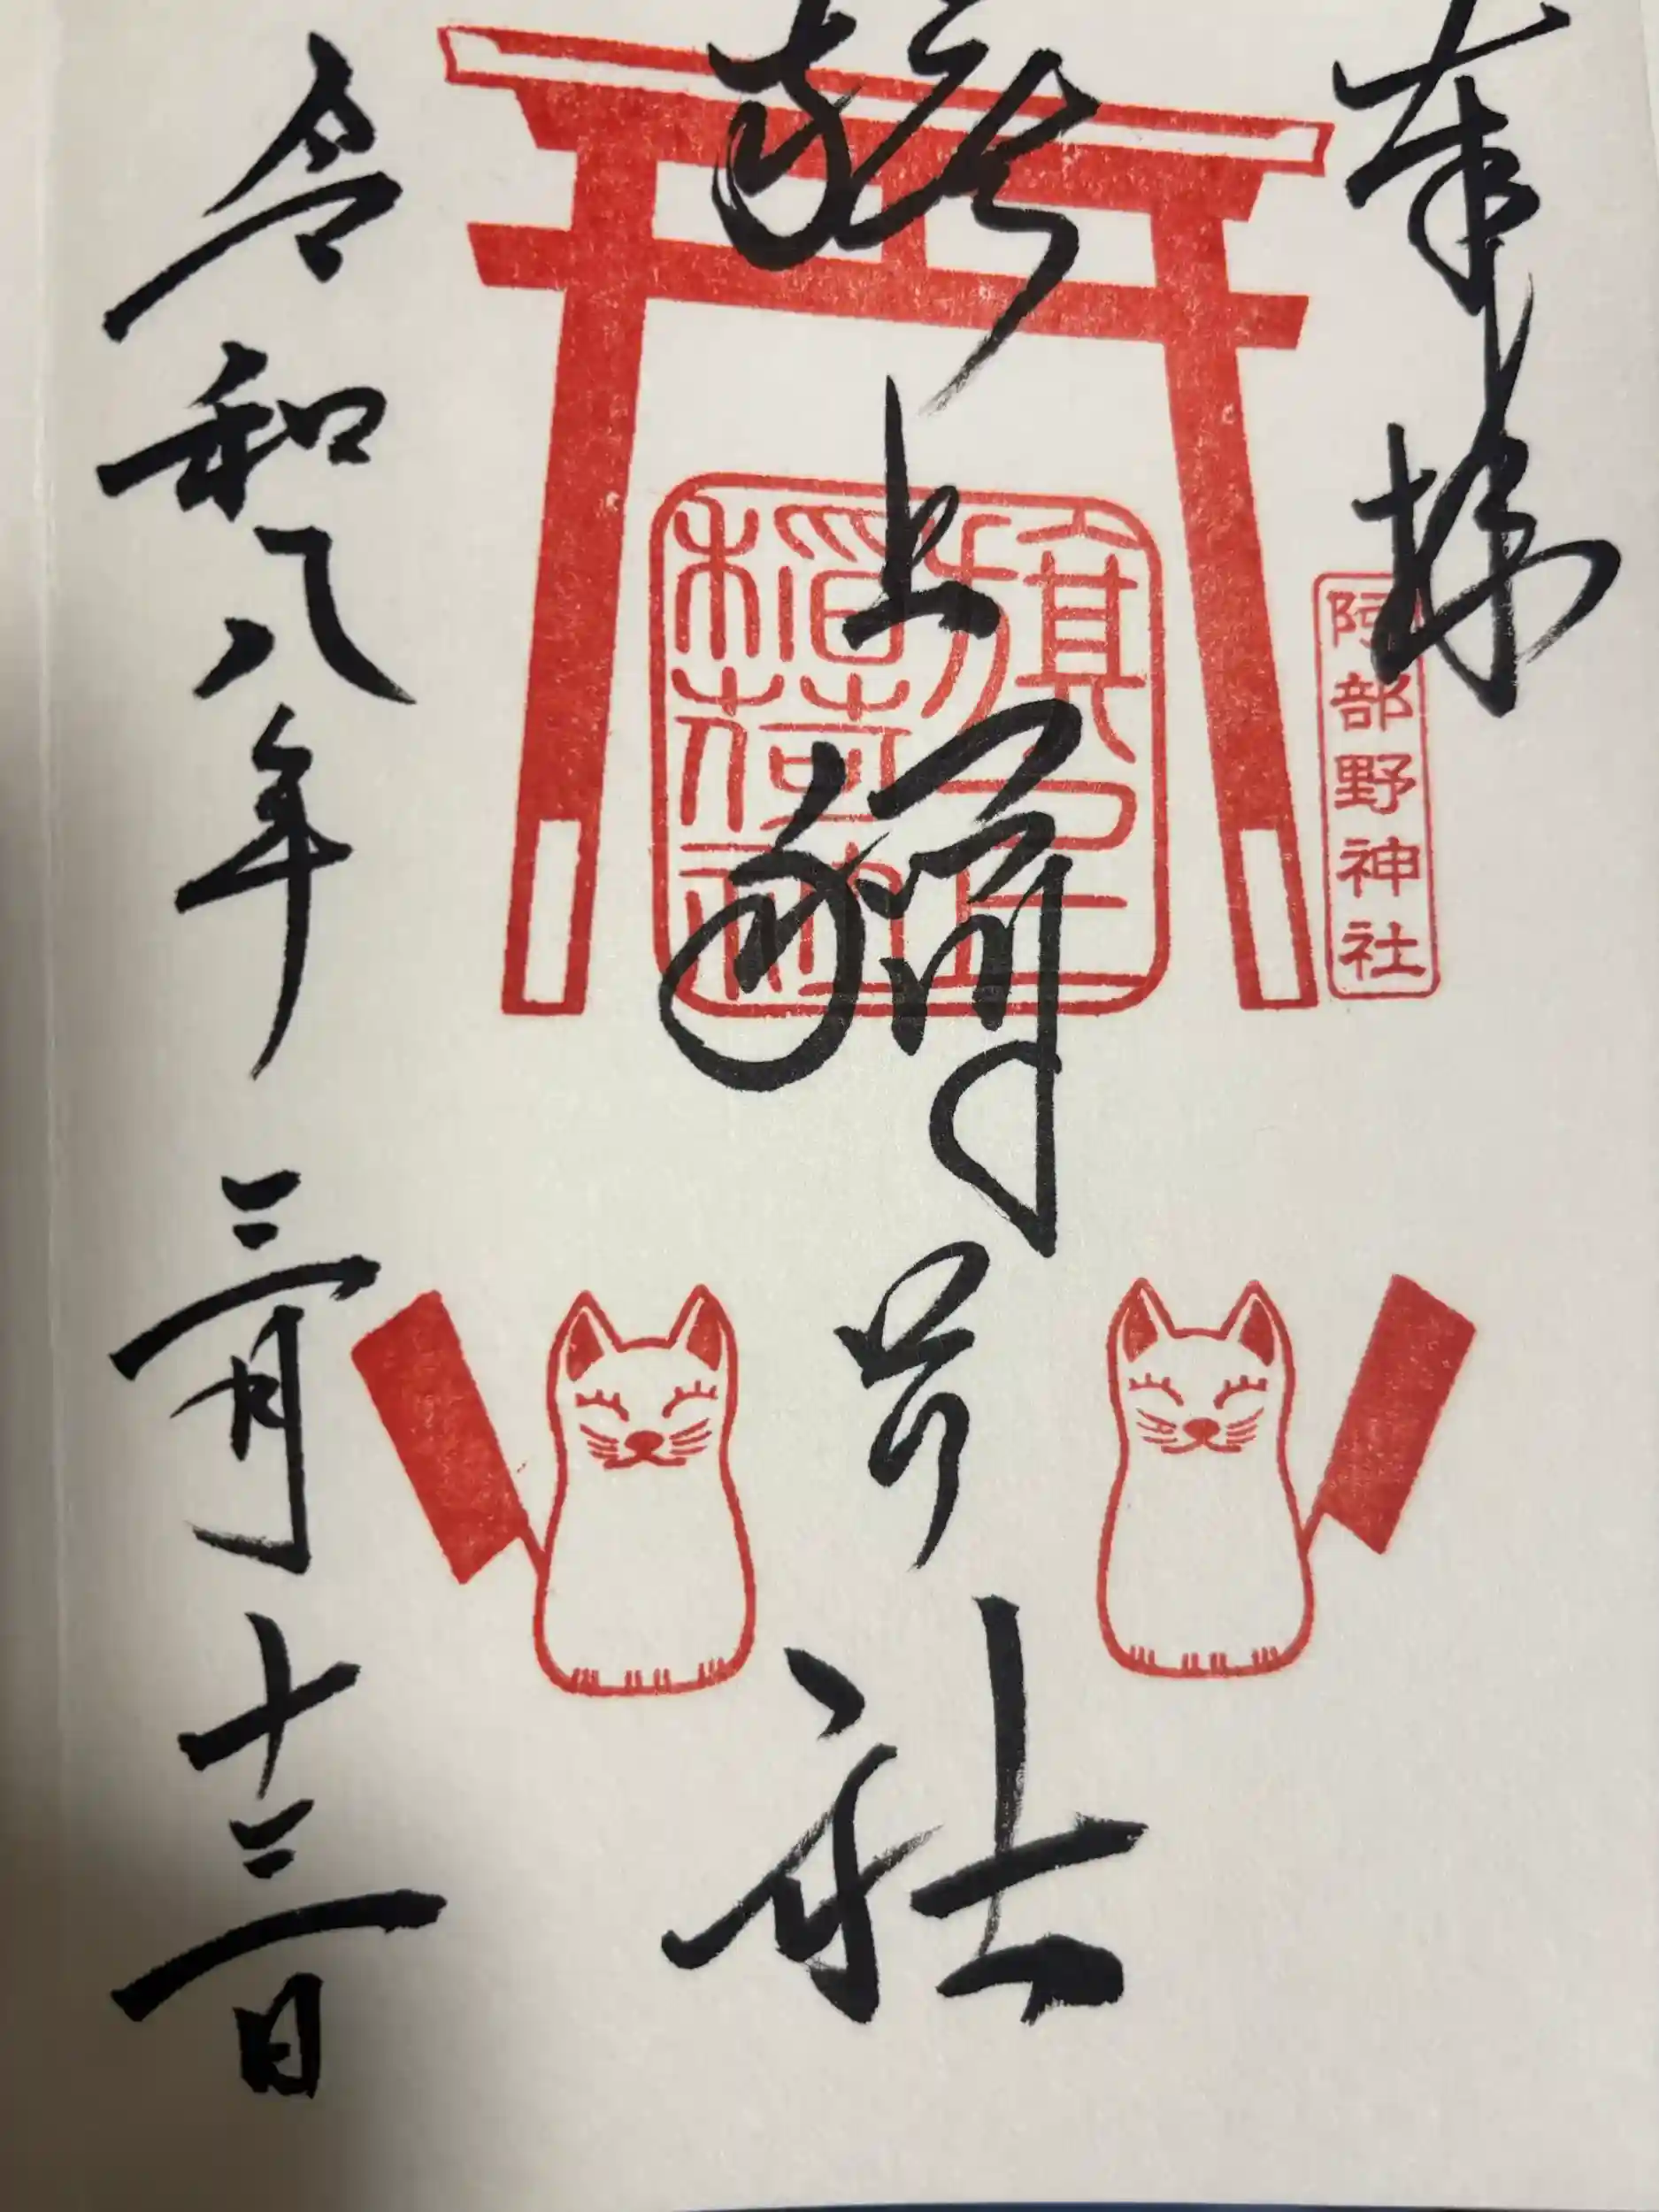 奉拝
阿部野神社
旗上稲荷社
旗上
稲荷社
令和八年 三月十三日